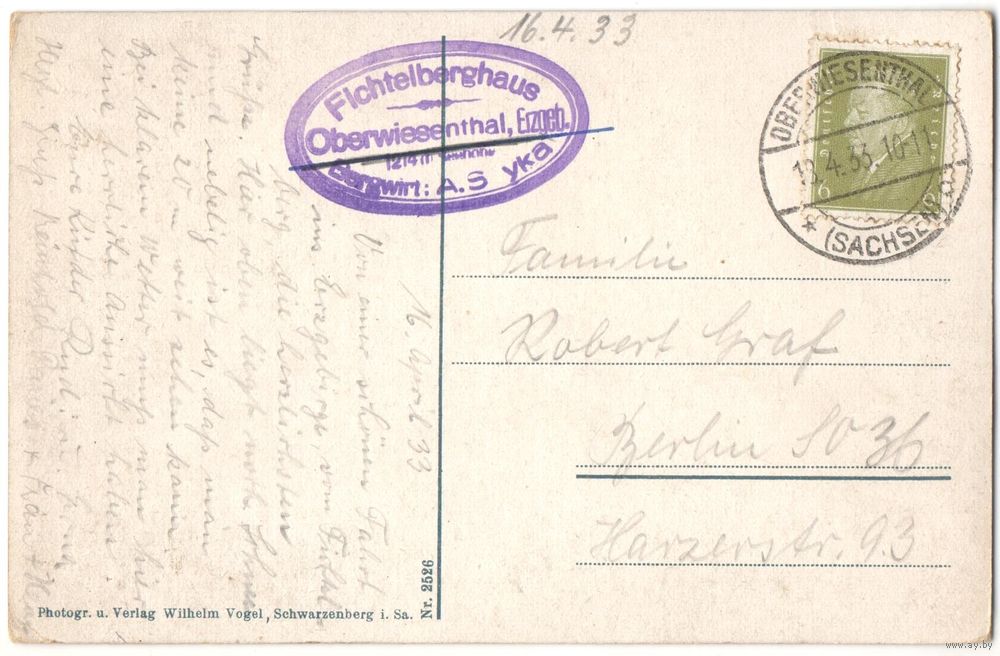 16.4.33
Fichtelberghaus
Oberwiesenthal, Erzgeb.
1214 m
Bergwirt: A. S yka
OBERWIESENTHAL
4.33.10-11
* (SACHSEN)
16. April 33
Von einer schönen Fahrt
ins Erzgebirge, vom Fichtel-
berg, die herzlichsten
Grüße. Hier oben liegt noch Schnee
und neblig ist es, daß man
keine 20 m weit sehen kann.
Bei klarem Wetter muß man hier
eine herrliche Aussicht haben.
Eure Kinder Rudi u.
Familie
Robert Graf
Berlin SO 36
Harzerstr. 93
Photogr. u. Verlag Wilhelm Vogel, Schwarzenberg i. Sa.
Nr. 2526
www.ay.by